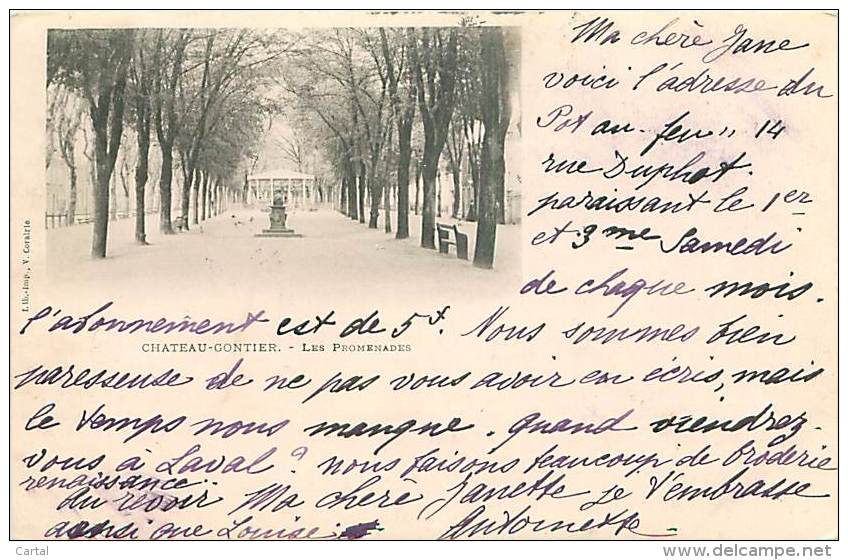 Ma chère Jane
voici l'adresse du
Pot au-feu" 14
rue Duphot.
paraissant le 1er
et 3me Samedi
de chaque mois.
l'abonnement est de 5f. Nous sommes bien
CHATEAU-GONTIER. - LES PROMENADES
paresseuse de ne pas vous avoir en écris, mais
le temps nous manque. Quand viendrez-
vous à Laval? nous faisons beaucoup de broderie
renaissance
Au revoir Ma chère Janette je t'embrasse
ainsi que Louise
Antoinette
Lith.-Imp., V. Corairie
© Cartal
www.delcampe.net